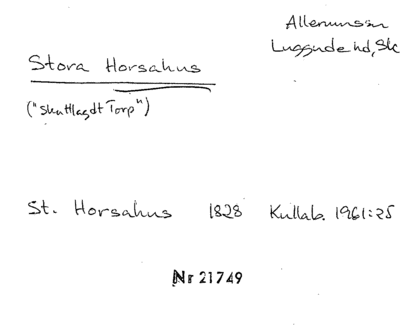 Allerums sn
Luggude hd, Sk
Stora Horsahus
("Skattlagdt Torp")
St. Horsahus 1828 Kullab. 1961:25
Nr 21749